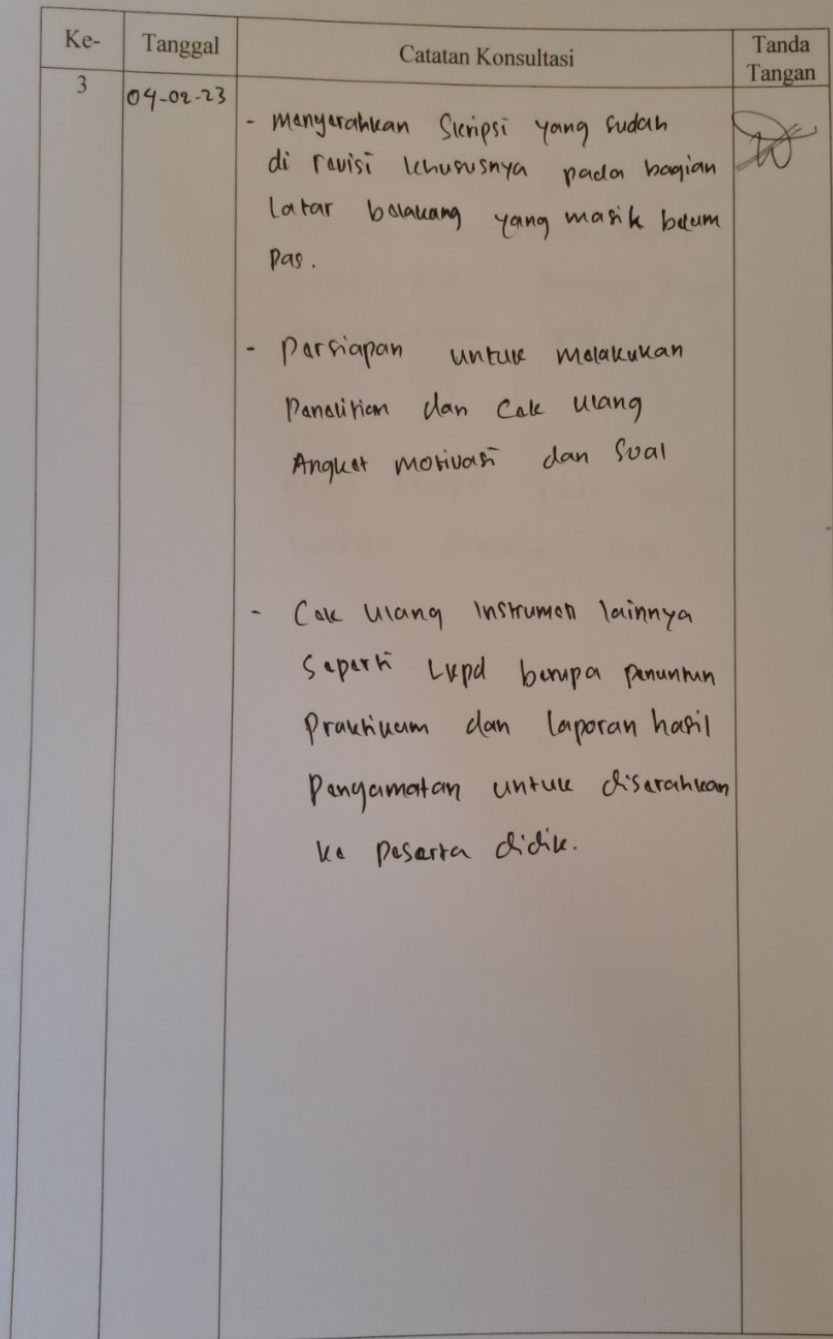 Ke-
Tanggal
Catatan Konsultasi
Tanda
Tangan
3
04-02-23
- Menyerahkan Skripsi yang sudah
di revisi khususnya pada bagian
latar belakang yang masih belum
pas.
- Persiapan untuk melakukan
Penelitian dan Cek Ulang
Angket motivasi dan Soal
- Cek Ulang Instrumen lainnya
Seperti Lkpd berupa penuntun
Praktikum dan laporan hasil
Pengamatan untuk diserahkan
ke peserta didik.